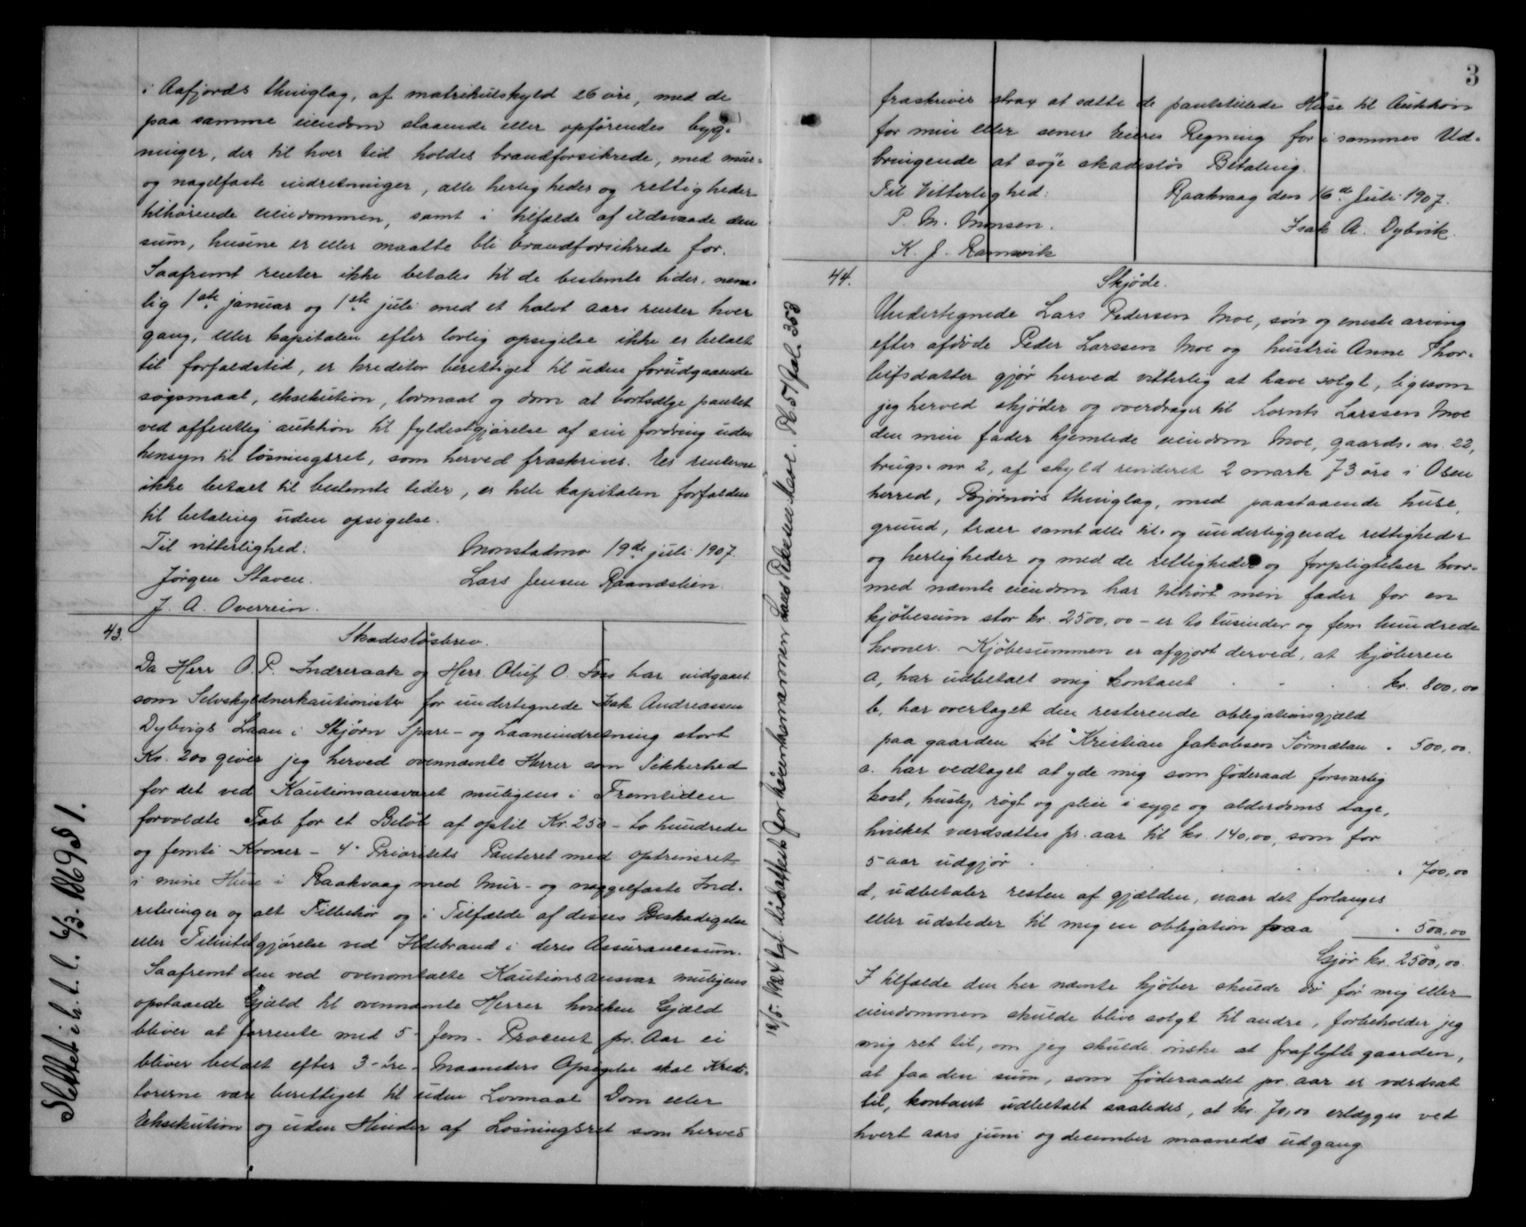 i Aafjords thinglag, af matrikulskyld 26 øre, med de
paa samme eiendom staaende eller opførendes byg-
ninger, der til hver tid holdes brandforsikrede, med mur-
og nagelfaste indretninger, alle herligheder og rettigheder
tilhørende eiendommen, samt i tilfælde af ildsvaade den
sum, husene er eller maatte bli brandforsikrede for.
Saafremt renter ikke betales til de bestemte tider, nem-
lig 1ste januar og 1ste juli med et halvt aars renter hver
gang, eller kapitalen efter lovlig opsigelse ikke er betalt
til forfaldstid, er kreditor berettiget til uden forudgaaende
søgsmaal, eksekution, lovmaal og dom at bortsælge pantet
ved offentlig auktion til fyldestgjørelse af sin fordring uden
hensyn til løsningsret, som herved fraskrives. Er renterne
ikke betalt til bestemte tider, er hele kapitalen forfalden
til betaling uden opsigelse.
Til vitterlighed: Monstadmo 19de juli 1907.
Jørgen Staven. Lars Jensen Raandstein.
J. A. Overrein.
43. Skadesløsbrev.
Da Herr O. P. Indreraak og Herr Oluf O. Foss har indgaaet
som Selvskyldnerkautionister for undertegnede Isak Andreassen
Dybvigs Laan i Skjørn Spare- og Laaneindretning stort
Kr. 200 giver jeg herved ovennævnte Herrer som Sikkerhed
for det ved Kautionsansvaret muligens i Fremtiden
forvoldte Tab for et Beløb af optil Kr. 250 - to hundrede
og femti Kroner - 4. Prioritets Panteret med optrinsret
i mine Huse i Raakvaag med Mur- og naggelfaste Ind-
retninger og alt Tilbehør og i Tilfælde af desses Beskadigelse
eller Tilintetgjørelse ved Ildebrand i deres Assurancesum.
Saafremt den ved ovenomtalte Kautionsansvar muligens
opstaaede Gjæld til ovennævnte Herrer hvilken Gjæld
bliver at forrente med 5 - fem - Procent pr. Aar ei
bliver betalt efter 3 - tre - Maaneders Opsigelse skal Kredi-
torerne være berettiget til uden Lovmaal Dom eller
Eksekution og uden Hinder af Løsningsret som herved
Slettet ih. t. l. 6/3. 1869 § 1.
3
fraskrives strax at sætte de pantstillede Huse til Auktion
for min eller senere Eieres Regning for i sammes Ud-
bringende at søge skadesløs Betaling.
Til Vitterlighed: Raakvaag den 16de Juli 1907.
P. M. Monsen. Isak A. Dybvik.
K. J. Ramsvik
44. Skjøde.
Undertegnede Lars Pedersen Moe, søn og eneste arving
efter afdøde Peder Larssen Moe og hustru Anne Thor-
leifsdatter gjør herved vitterlig at have solgt, ligesom
jeg herved skjøder og overdrager til Lornts Larssen Moe
den min fader hjemlede eiendom Moe, gaards-nr. 22,
brugs-nr 2, af skyld revideret 2 mark 73 øre i Osen
herred, Bjørnørs thinglag, med paastaaende huse,
grund, træer samt alle til- og underliggende rettigheder
og herligheder og med de rettigheder og forpligtelser hvor-
med nævnte eiendom har tilhørt min fader for en
kjøbesum stor kr. 2500,00 - er to tusinder og fem hundrede
kroner. Kjøbesummen er afgjort derved, at kjøberen
a, har udbetalt mig kontant kr. 800,00
b, har overtaget den resterende obligationsgjæld
paa gaarden til Kristian Jakobsen Sørmælan " 500,00.
c. har vedtaget at yde mig som føderaad forsvarlig
kost, husly, røgt og pleie i syge og alderdoms dage,
hvilket værdsættes pr. aar til kr. 140,00, som for
5 aar udgjør " 700,00
d, udbetaler resten af gjælden, naar det forlanges
eller udsteder til mig en obligation paa " 500,00
Gjør kr. 2500,00.
I tilfælde den her nævnte kjøber skulde dø før mig eller
eiendommen skulde blive solgt til andre, forbeholder jeg
mig ret til, om jeg skulde ønske at fraflytte gaarden,
at faa den sum, som føderaadet pr. aar er værdsat
til, kontant udbetalt saaledes, at kr. 70,00 erlægges ved
hvert aars juni og december maaneds udgang.